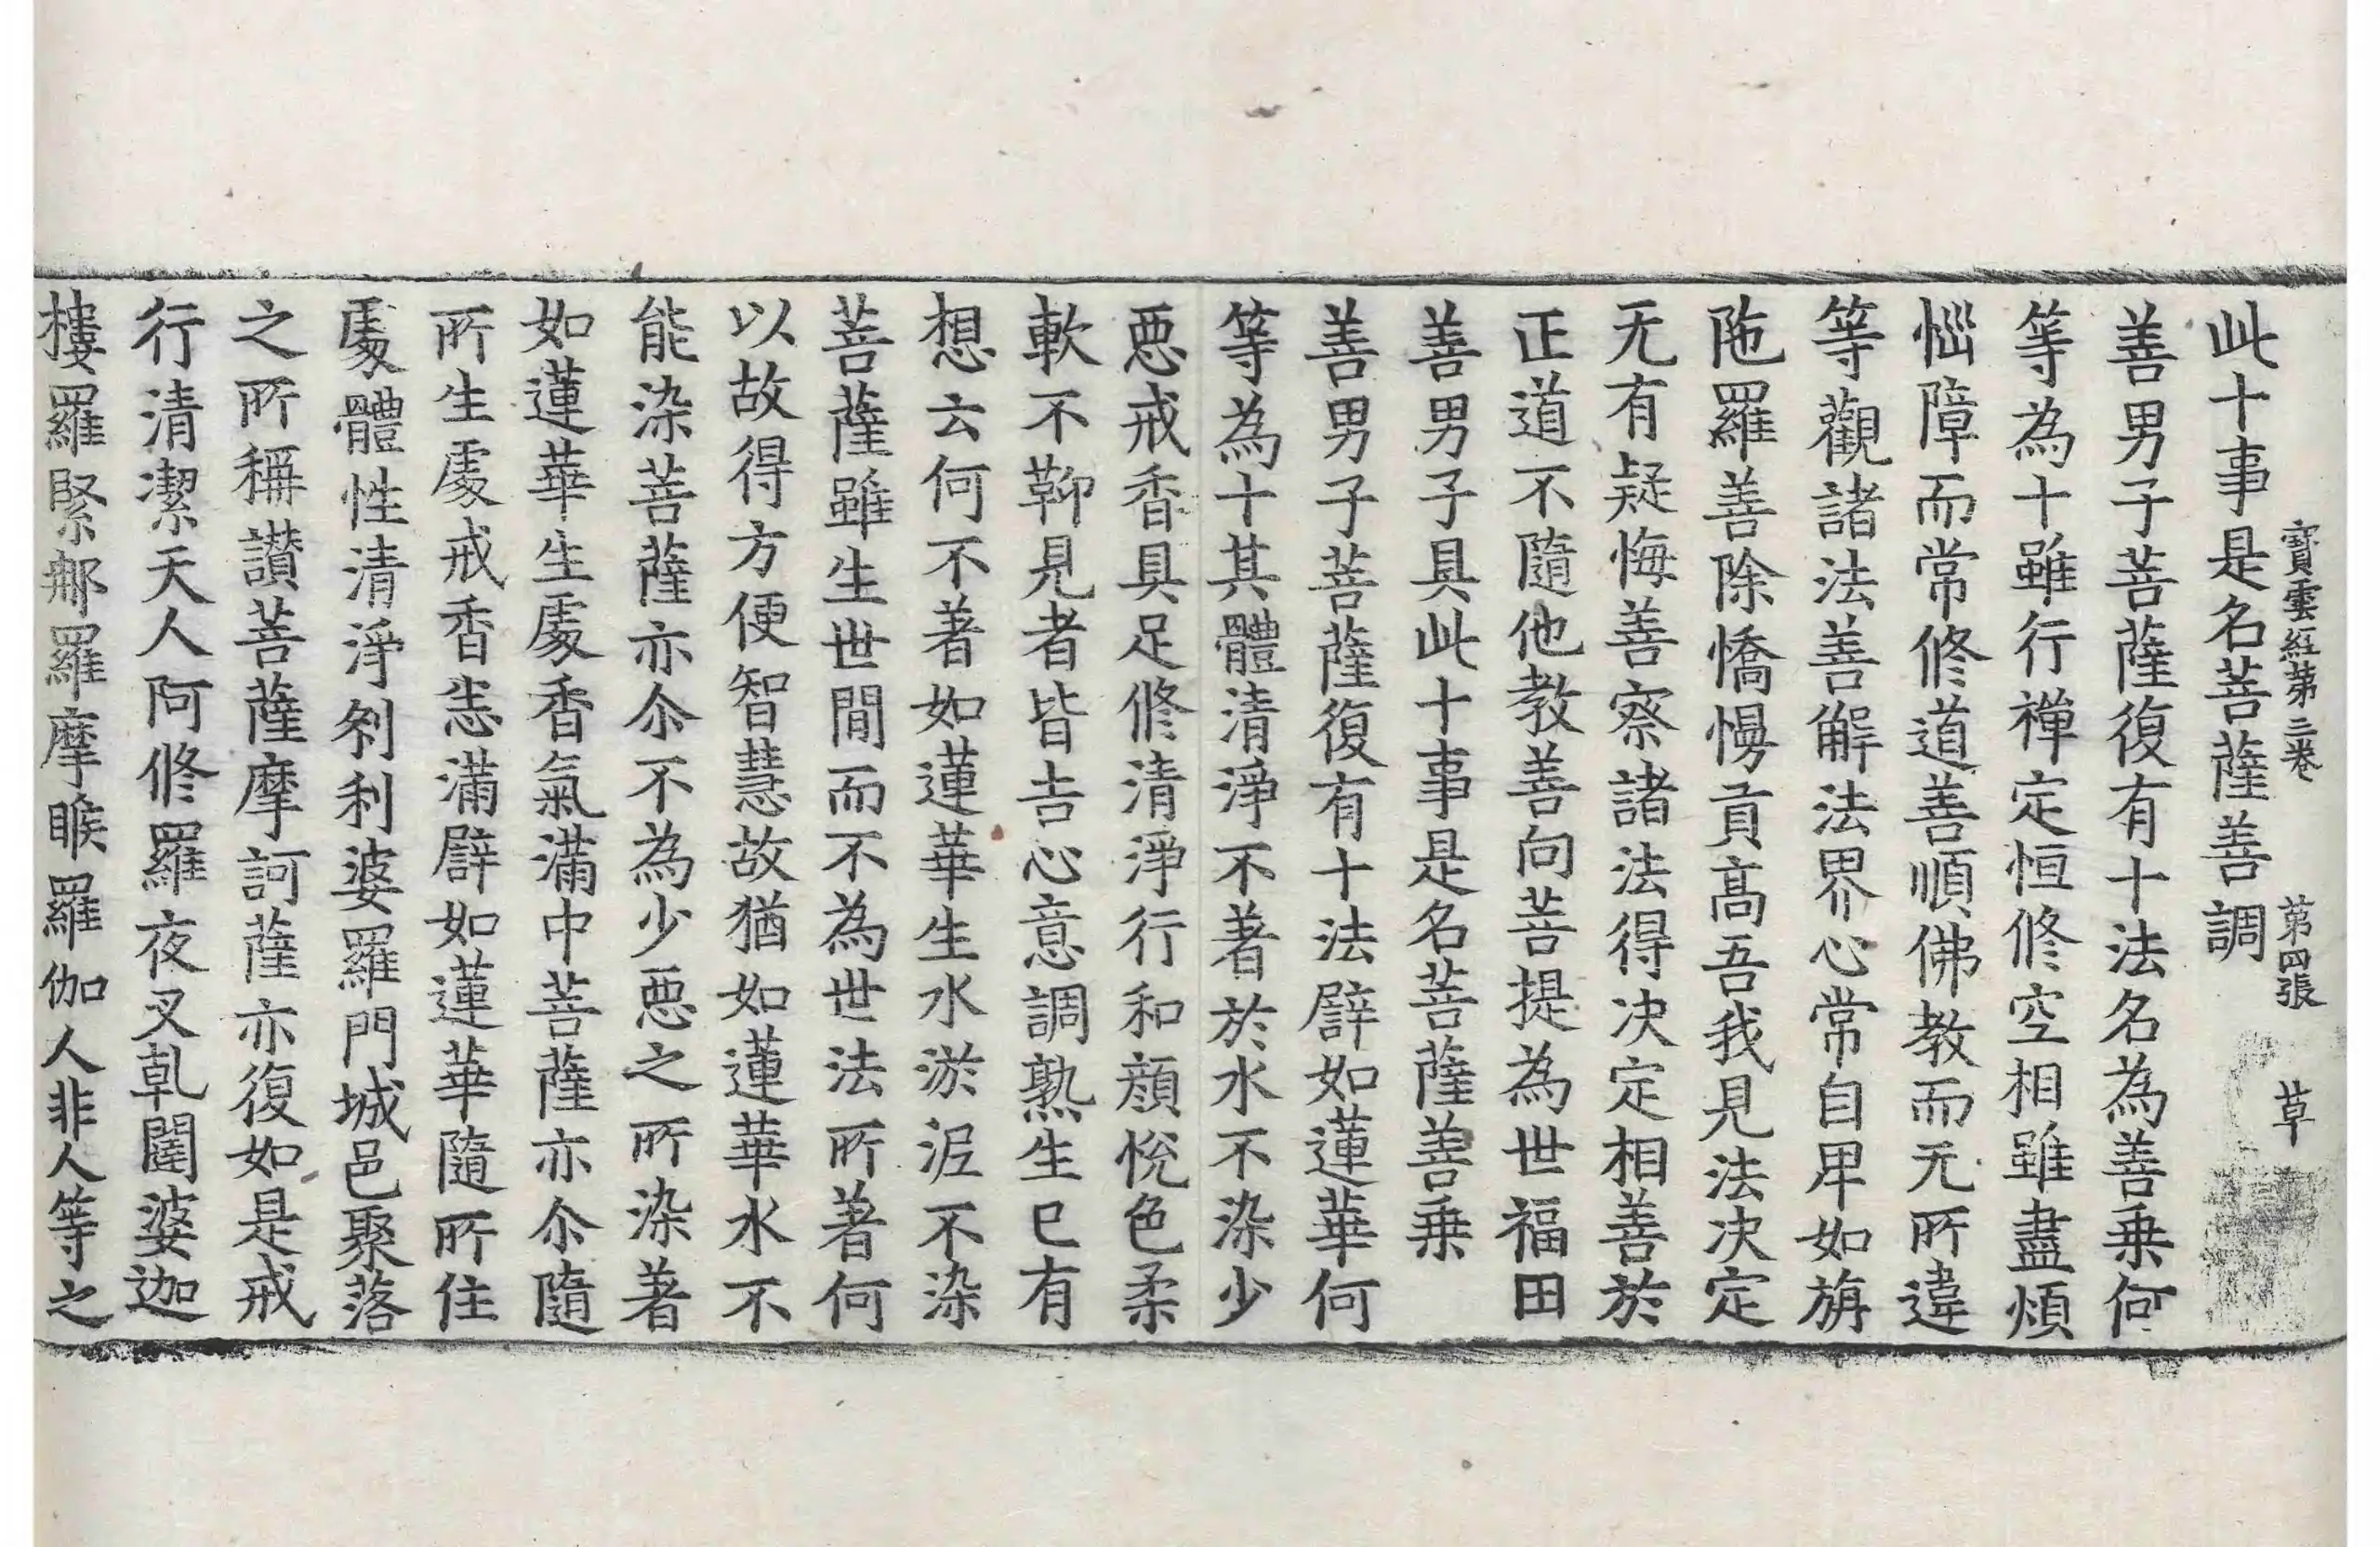 寶雲經第三卷 第四張 草
此十事是名菩薩善調
善男子菩薩復有十法名為善乗何
等為十雖行禪定恒修空相雖盡煩
惱障而常修道善順佛教而无所違
等觀諸法善解法界心常自卑如旃
陁羅善除憍慢貢髙吾我見法决定
无有疑悔善察諸法得决定相善於
正道不隨他教善向菩提為世福田
善男子具此十事是名菩薩善乗
善男子菩薩復有十法譬如蓮華何
等為十其體清淨不著於水不染少
惡戒香具足修清淨行和顔恱色柔
軟不𩋾見者皆吉心意調熟生已有
想云何不著如蓮華生水淤泥不染
菩薩雖生世間而不為世法所著何
以故得方便智慧故猶如蓮華水不
能染菩薩亦尒不為少惡之所染著
如蓮華生處香氣滿中菩薩亦尒隨
所生處戒香悉滿譬如蓮華隨所住
處體性清淨刹利婆羅門城邑聚落
之所稱讃菩薩摩訶薩亦復如是戒
行清潔天人阿修羅夜叉乹闥婆迦
樓羅緊那羅摩睺羅伽人非人等之